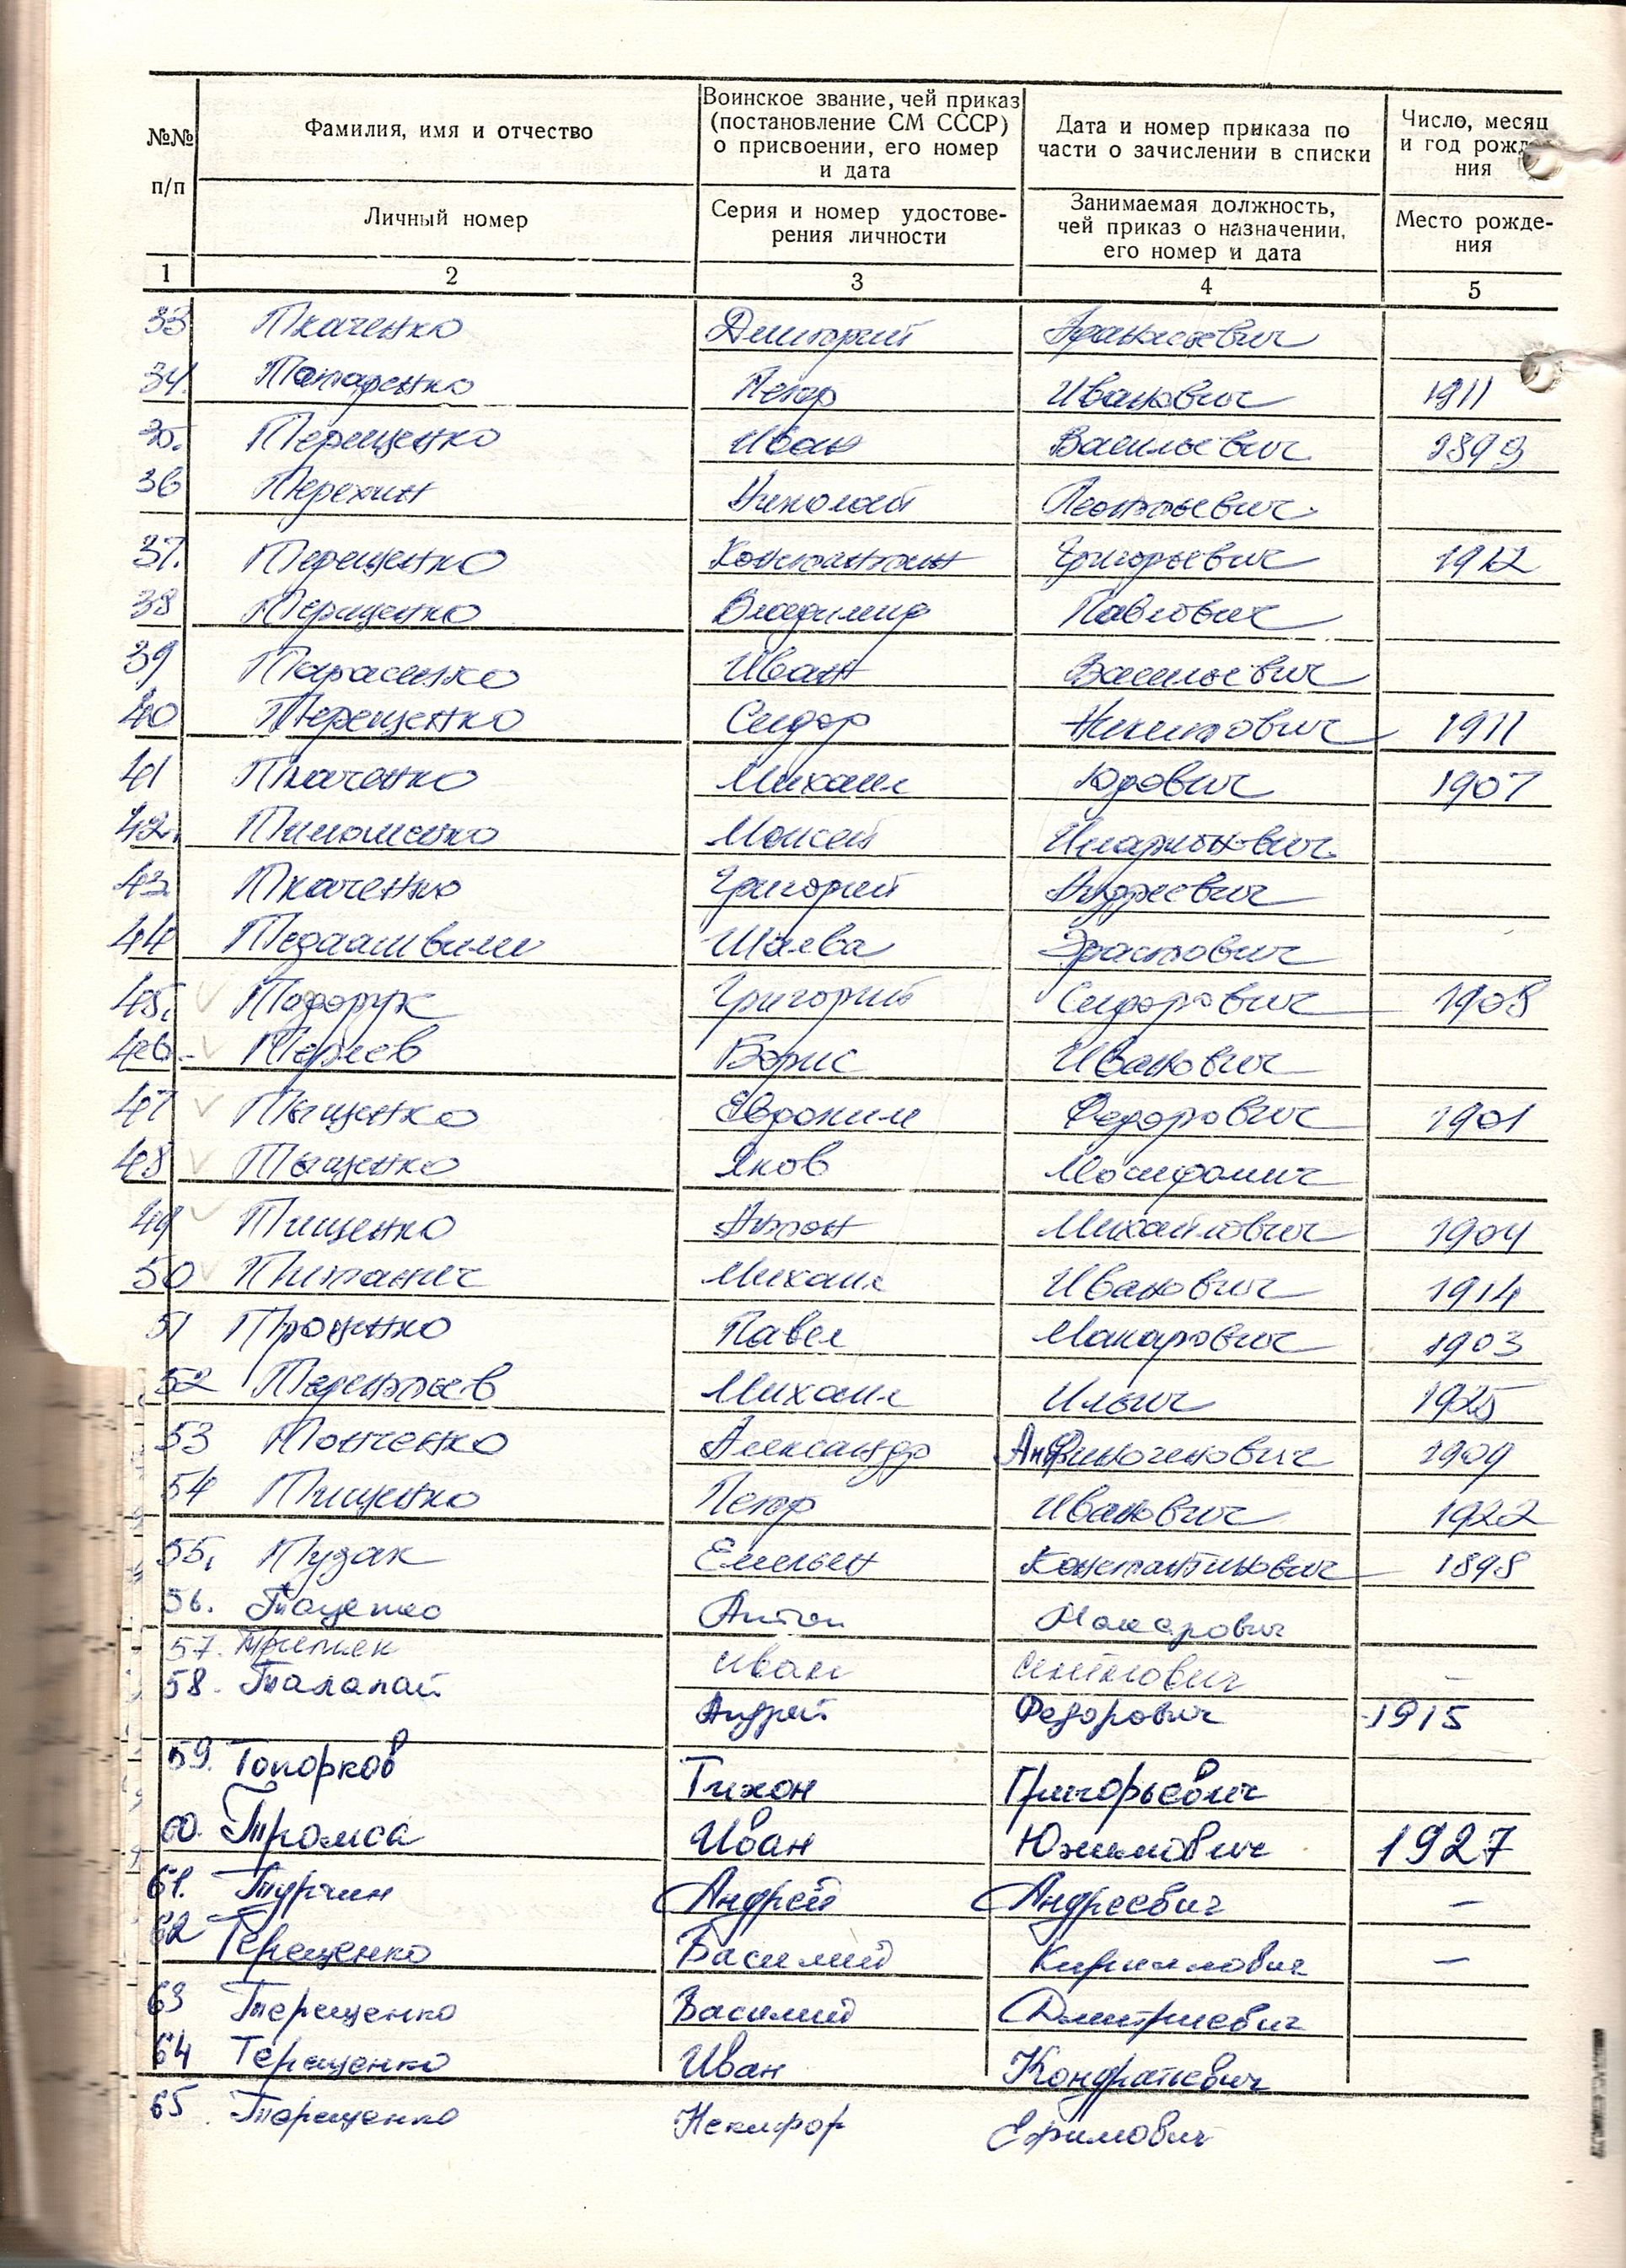 №№ п/п
Фамилия, имя и отчество
Личный номер
Воинское звание, чей приказ
(постановление СМ СССР)
о присвоении, его номер
и дата
Серия и номер удостове-
рения личности
Дата и номер приказа по
части о зачислении в списки
Занимаемая должность,
чей приказ о назначении,
его номер и дата
Число, месяц
и год рожде-
ния
Место рожде-
ния
1 2 3 4 5
33 Ткаченко Дмитрий Афанасьевич
34. Татаренко Петр Иванович 1911
35. Терещенко Иван Васильевич 1899
36 Терехин Николай Леонтьевич
37. Терещенко Константин Григорьевич 1912
38 Терещенко Владимир Павлович
39 Тарасенко Иван Васильевич
40 Терещенко Сидор Никитович 1911
41 Ткаченко Михаил Юрович 1907
42. Тимошенко Моисей Иларионович
43. Ткаченко Григорий Андреевич
44 Тедиашвили Шалва Эрастович
45. Тодорук Григорий Сидорович 1908
46. Борис Иванович
47 Тыщенко Евдоким Федорович 1901
48 Тыщенко Яков
49 Тищенко Антон Михайлович 1904
50 Титанич Михаил Иванович 1914
51 Троценко Павел Макарович 1903
52 Терентьев Михаил Ильич 1925
53 Тонченко Александр 1909
54 Тищенко Петр Иванович 1922
55. Тузак Емельян Константинович 1898
56. Таценко Антон Макарович
57. Третяк Иван –
58. Талалай Андрей Федорович 1915
59. Топорков Тихон Григорьевич
60. Тромса Иван Юхимович 1927
61. Турчин Андрей Андреевич –
62 Терещенко Василий Кириллович –
63 Терещенко Василий Дмитриевич
64 Терещенко Иван Кондратьевич
65 Терещенко Некифор Ефимович